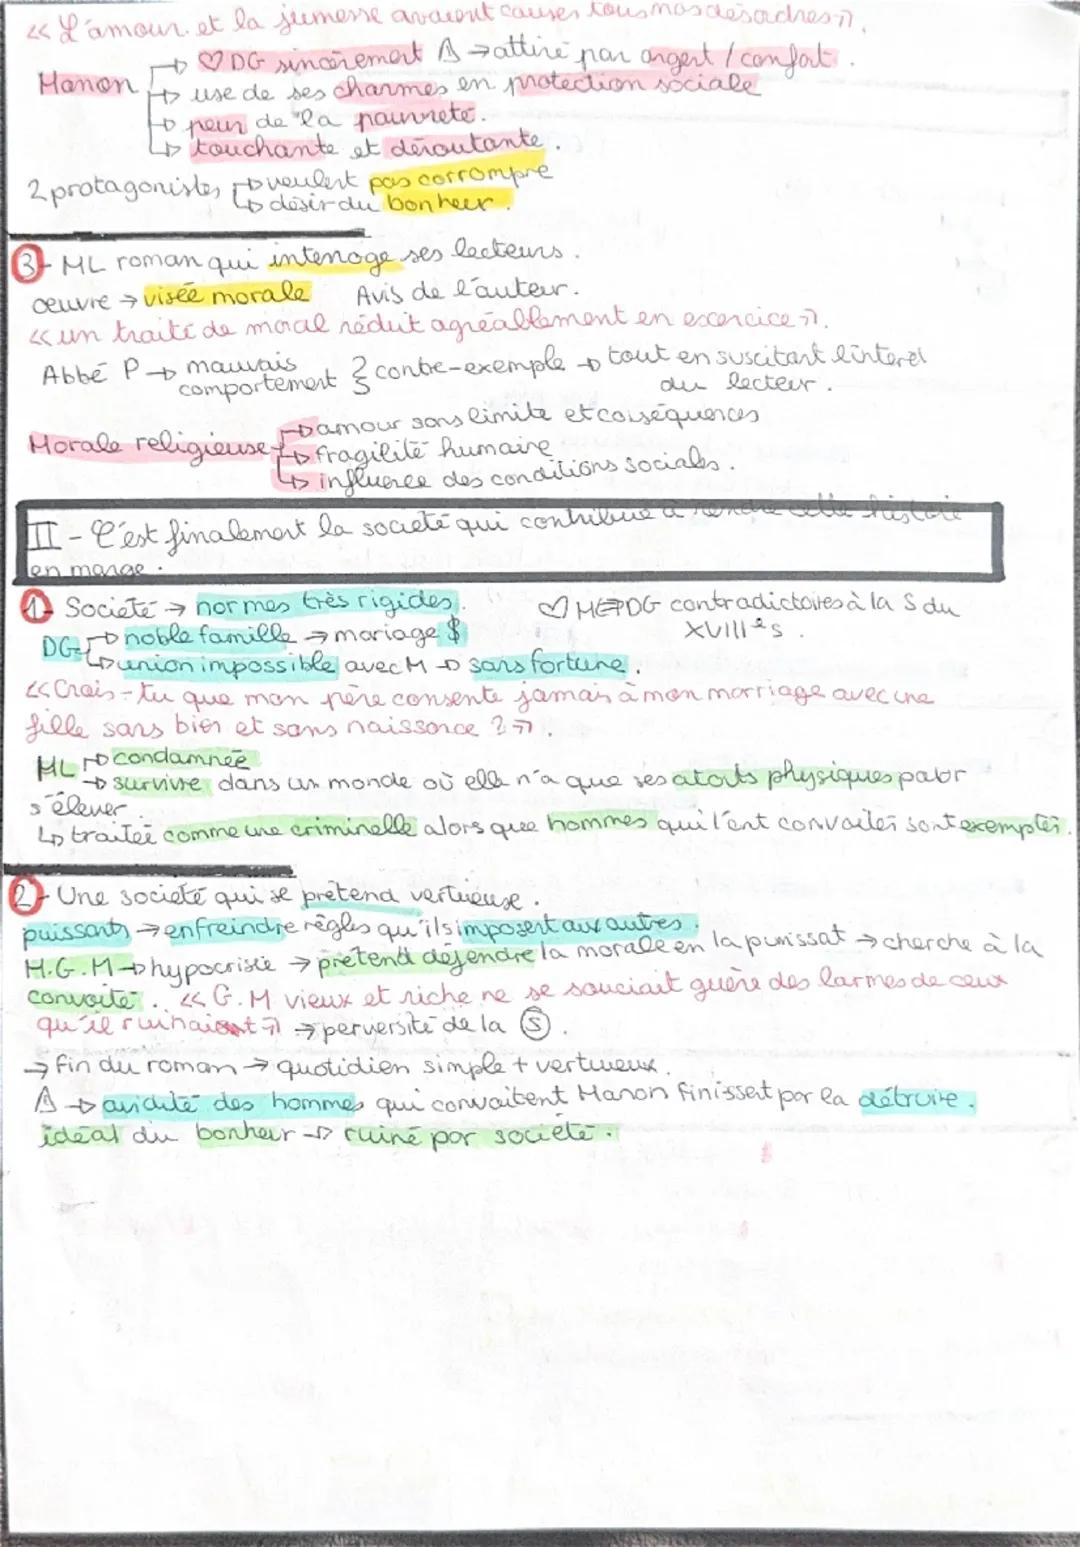 « L'amour et la jeunesse avaient causer tous nos désordres ».
Manon → ♡ DG sincèrement ⚠ → attiré par argent / confort.
→ use de ses charmes en protection sociale
→ peur de la pauvreté.
→ touchante et déroutante.
2 protagonistes → veulent pas corrompre
→ désir du bonheur.
3- ML roman qui interroge ses lecteurs.
œuvre → visée morale Avis de l'auteur.
« un traité de moral réduit agréablement en excercice ».
Abbé P → mauvais comportement } contre-exemple → tout en suscitant l'interet du lecteur.
Morale religieuse → amour sans limite et conséquences
→ fragilité humaine
→ influence des conditions sociales.
II - C'est finalement la societé qui contribue a rendre cette histoire
en marge.
1- Societé → normes très rigides. ♡ ML⇄DG contradictoires à la S du XVIIIe s.
DG → noble famille → mariage $
→ union impossible avec M → sans fortune.
« Crois-tu que mon père consente jamais à mon marriage avec une
fille sans bien et sans naissance ? ».
ML → condamnée
→ survivre dans un monde où elle n'a que ses atouts physiques pour
s'élever
↳ traitée comme une criminelle alors que hommes qui l'ont convoiter sont exempter.
2- Une societé qui se prétend vertueuse.
puissants → enfreindre règles qu'ils imposent aux autres.
M.G.M → hypocrisie → prétend défendre la morale en la punissat → cherche à la
convoité. « G.M vieux et riche ne se souciait guère des larmes de ceux
qu'il ruinaient » → perversité de la Ⓢ.
→ Fin du roman → quotidien simple + vertueux.
⚠ → avidité des hommes qui convoitent Manon finissent par la détruire.
idéal du bonheur → ruiné par societé.